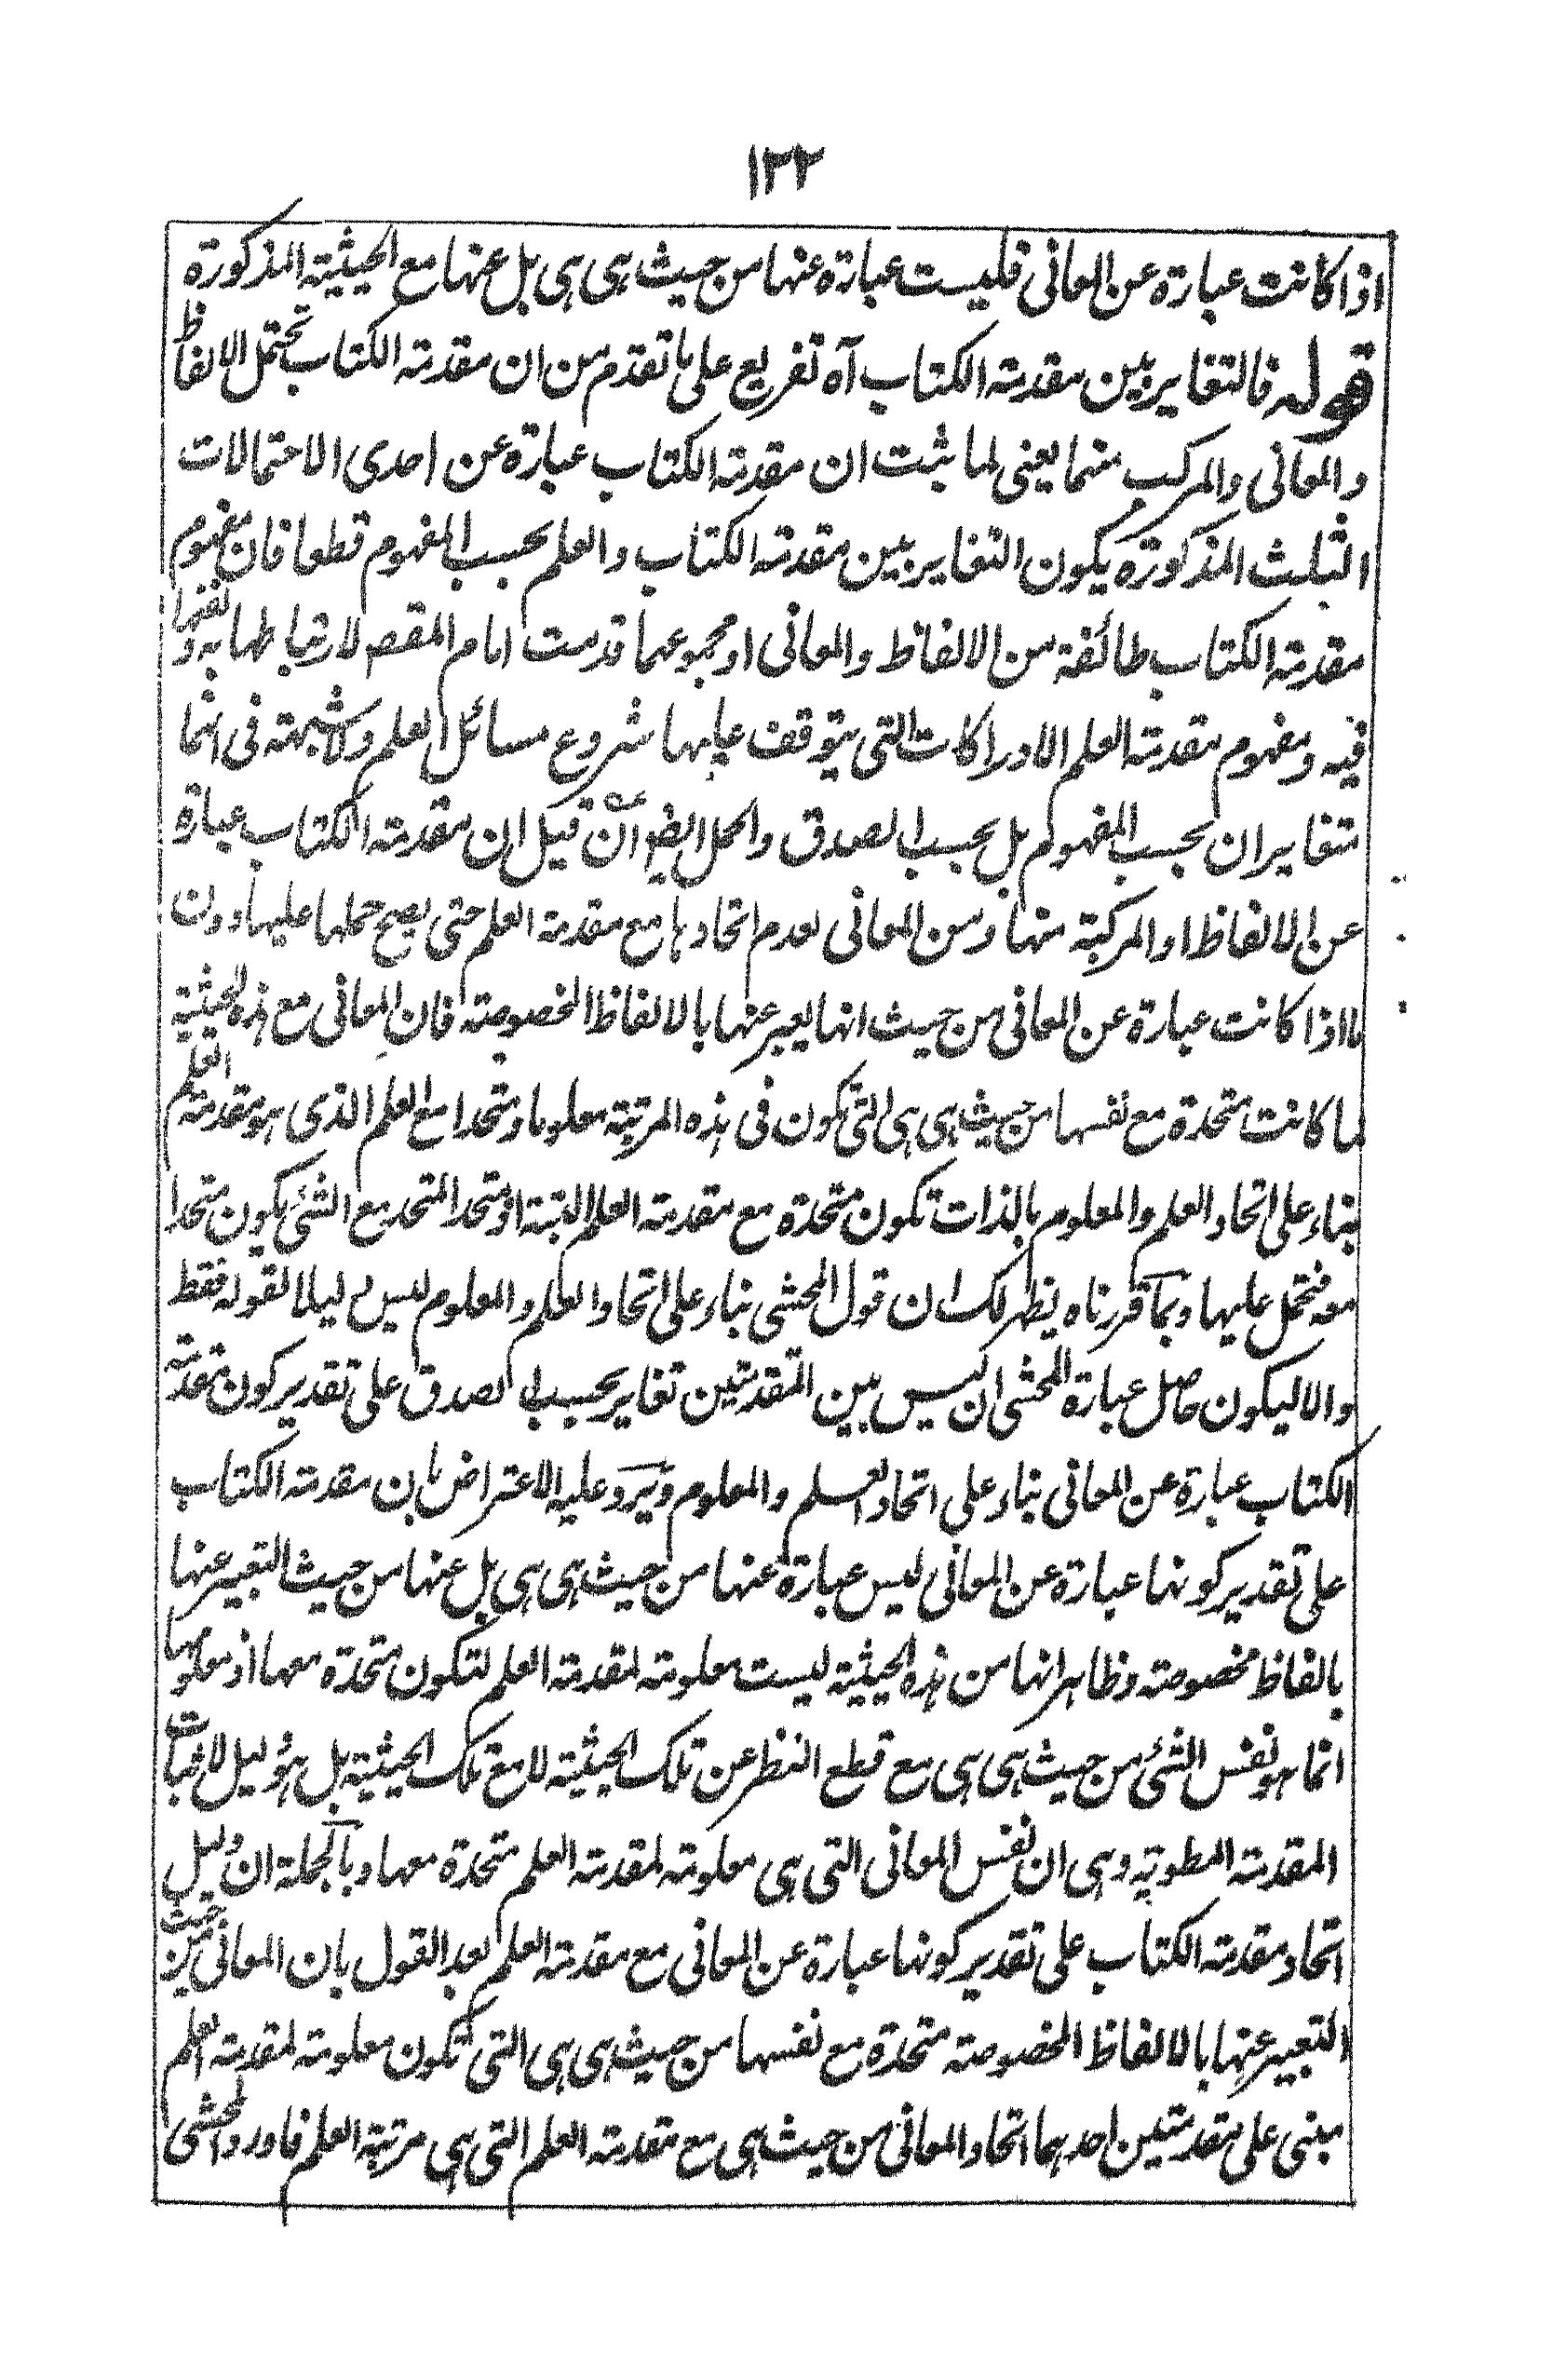 ١٢٢
اذا كانت عبارة عن المعانى فليست عبارة عنها من حيث هى هى بل عنها مع الحيثية المذكورة
قوله فالتغاير بين مقدمة الكتاب آه تفريع على ما تقدم من ان مقدمة الكتاب تحتمل الالفاظ
والمعانى والمركب منهما يعنى لما ثبت ان مقدمة الكتاب عبارة عن احدى الاحتمالات
الثلث المذكورة يكون التغاير بين مقدمة الكتاب والعلم بحسب المفهوم قطعا فان مفهوم
مقدمة الكتاب طائفة من الالفاظ والمعانى او مجموعهما قدمت امام المقصد لارتباطها به ونفعها
فيه ومفهوم مقدمة العلم الادراكات التى يتوقف عليها شروع مسائل العلم ولا شبهة فى انهما
متغايران بحسب المفهوم بل بحسب الصدق والحمل ايضا ان قيل ان مقدمة الكتاب عبارة
عن الالفاظ او المركبة منها ومن المعانى لعدم اتحادها مع مقدمة العلم حتى يصح حملها عليها دون
ما اذا كانت عبارة عن المعانى من حيث انها يعبر عنها بالالفاظ المخصوصة فان المعانى مع هذه الحيثية
لما كانت متحدة مع نفسها من حيث هى هى التى تكون فى هذه المرتبة معلوما ومتحدا مع العلم الذى هو مقدمة العلم
بناء على اتحاد العلم والمعلوم بالذات تكون متحدة مع مقدمة العلم البتة او متحد المتحد مع الشئ يكون متحدا
معه فتحمل عليها وبما قررناه يظهر لك ان قول المحشى بناء على اتحاد العلم والمعلوم ليس دليلا لقوله فقط
والا ليكون حاصل عبارة المحشى ان ليس بين المقدمتين تغاير بحسب الصدق على تقدير كون مقدمة
الكتاب عبارة عن المعانى بناء على اتحاد العلم والمعلوم ويرد عليه الاعتراض بان مقدمة الكتاب
على تقدير كونها عبارة عن المعانى ليس عبارة عنها من حيث هى هى بل عنها من حيث التعبير عنها
بالفاظ مخصوصة وظاهر انها من هذه الحيثية ليست معلومة لمقدمة العلم لتكون متحدة معها اذ معلومها
انما هو نفس الشئ من حيث هى هى مع قطع النظر عن تلك الحيثية لا مع تلك الحيثية بل هو دليل لاثبات
المقدمة المطوية وهى ان نفس المعانى التى هى معلومة لمقدمة العلم متحدة معها وبالجملة ان دليل
اتحاد مقدمة الكتاب على تقدير كونها عبارة عن المعانى مع مقدمة العلم بعد القول بان المعانى من حيث
التعبير عنها بالالفاظ المخصوصة متحدة مع نفسها من حيث هى هى التى تكون معلومة لمقدمة العلم
مبنى على مقدمتين احدهما اتحاد المعانى من حيث هى مع مقدمة العلم التى هى مرتبة العلم فاورد المحشى